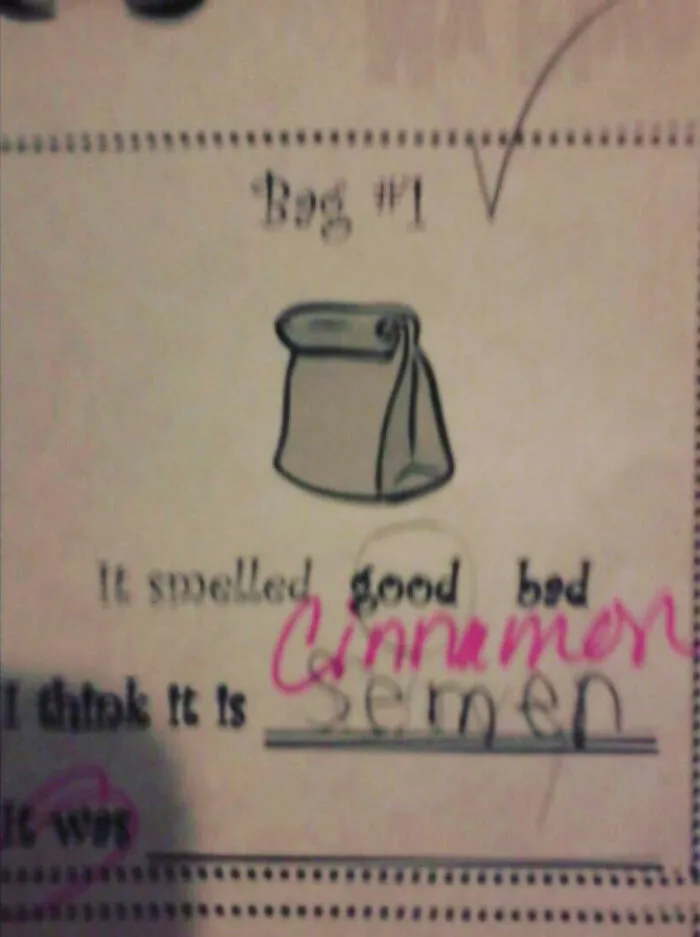 Bag #1
It smelled good bad
Cinnamon
I think it is semen
It was